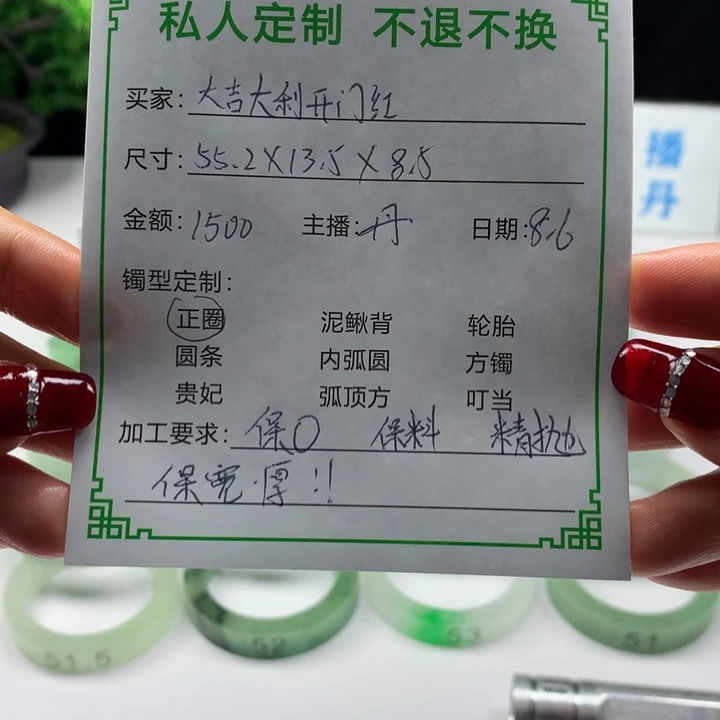 私人定制 不退不换
买家: 大吉大利开门红
尺寸: 55.2X13.5X8.5
金额: 1500 主播: 丹 日期: 8.6
镯型定制:
正圈 泥鳅背 轮胎
圆条 内弧圆 方镯
贵妃 弧顶方 叮当
加工要求: 保O 保料 精抛
保宽.厚!!
播
丹
51.5 52 53 51